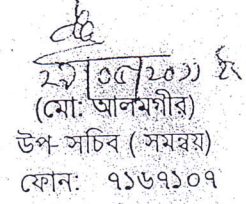 ২৯|০৫|২০১১ ইং
(মো: আলমগীর)
উপ- সচিব ( সমন্বয়)
ফোন: ৭১৬৭১০৭